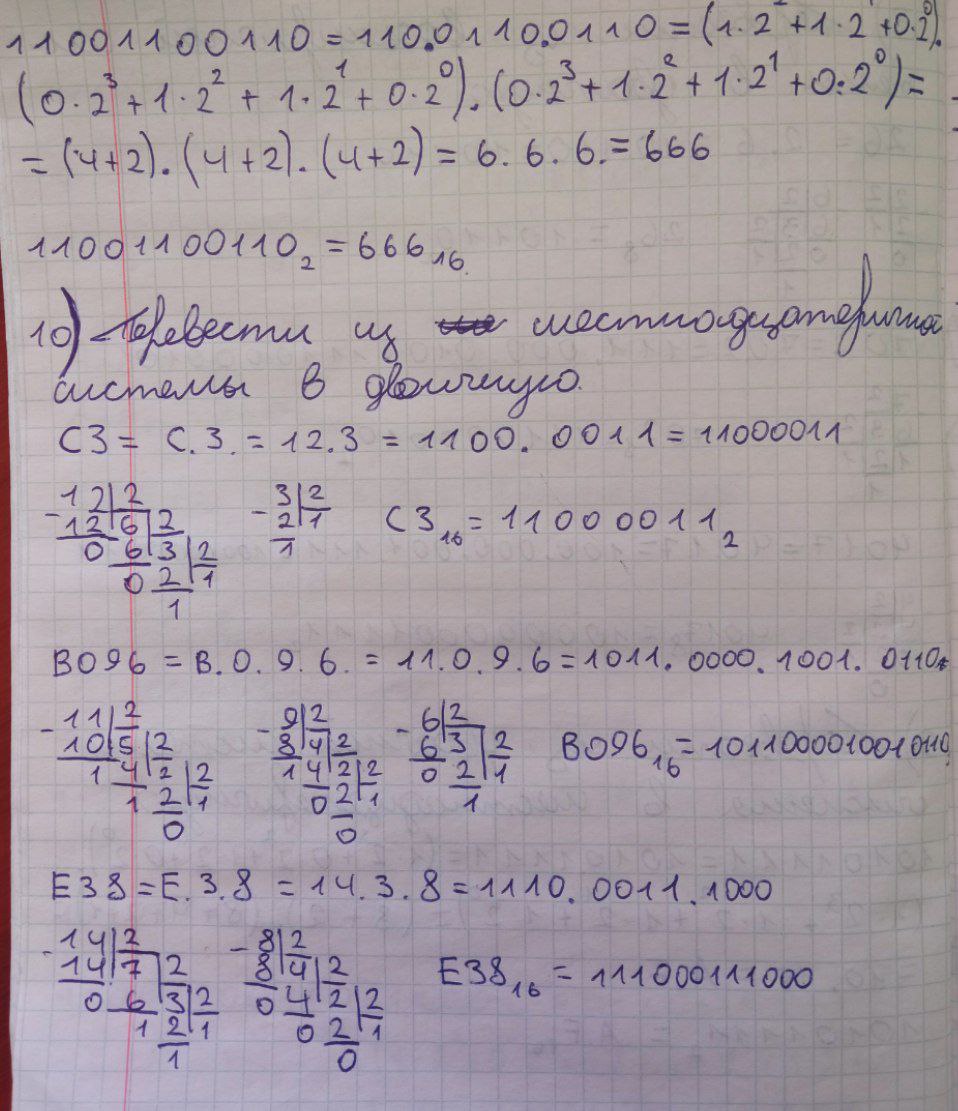 11001100110 = 110.0110.0110 = (1·2² + 1·2¹ + 0·2⁰).
(0·2³ + 1·2² + 1·2¹ + 0·2⁰).(0·2³ + 1·2² + 1·2¹ + 0·2⁰) =
= (4+2).(4+2).(4+2) = 6.6.6. = 666
11001100110₂ = 666₁₆
10) Перевести из шестнадцатеричной
системы в двоичную.
C3 = C.3. = 12.3 = 1100.0011 = 11000011
-12|2
12 6|2
0 6 3|2
0 2 1
1
-3|2
2 1
1
C3₁₆ = 11000011₂
B096 = B.0.9.6. = 11.0.9.6 = 1011.0000.1001.0110
-11|2
10 5|2
1 4 2|2
1 2 1
0
-9|2
8 4|2
1 4 2|2
0 2 1
0
-6|2
6 3|2
0 2 1
1
B096₁₆ = 1011000010010110
E38 = E.3.8 = 14.3.8 = 1110.0011.1000
-14|2
14 7|2
0 6 3|2
1 2 1
1
-8|2
8 4|2
0 4 2|2
0 2 1
0
E38₁₆ = 111000111000